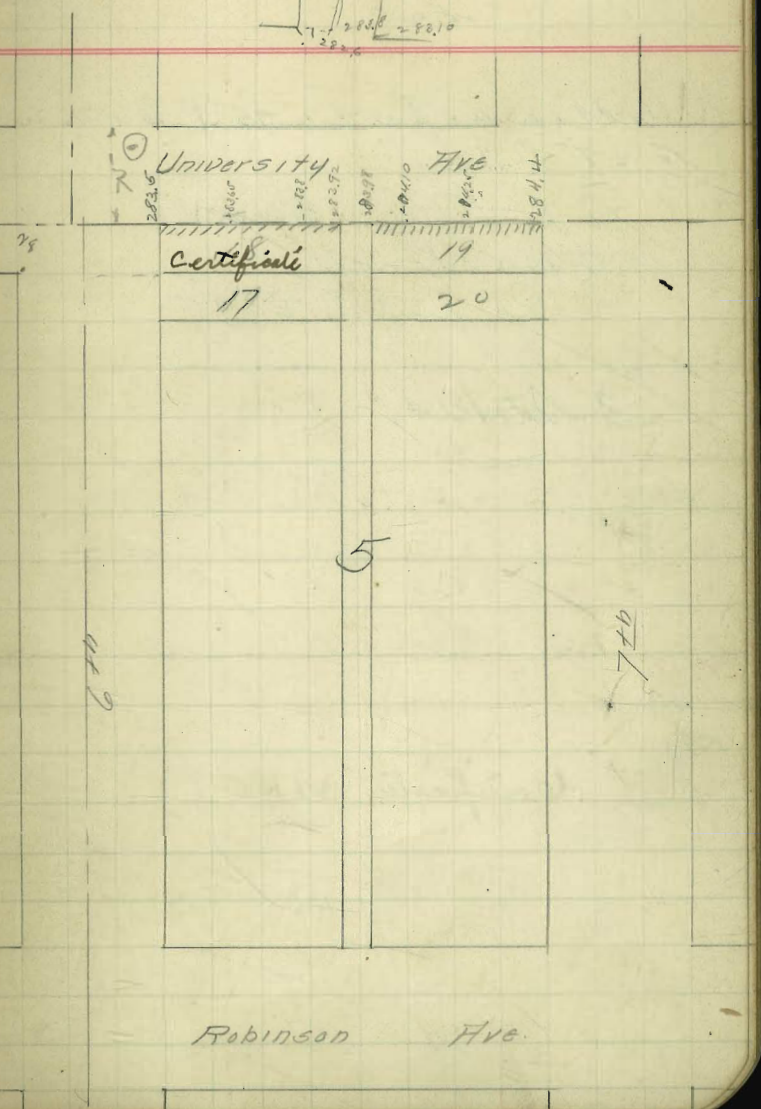 283.8 282.10
282.6
University Ave
N
283.5 283.65 283.8 283.92 283.98 284.10 284.25 284.4
Certificate 18 19
17 20
5
6th 7th
Robinson Ave.